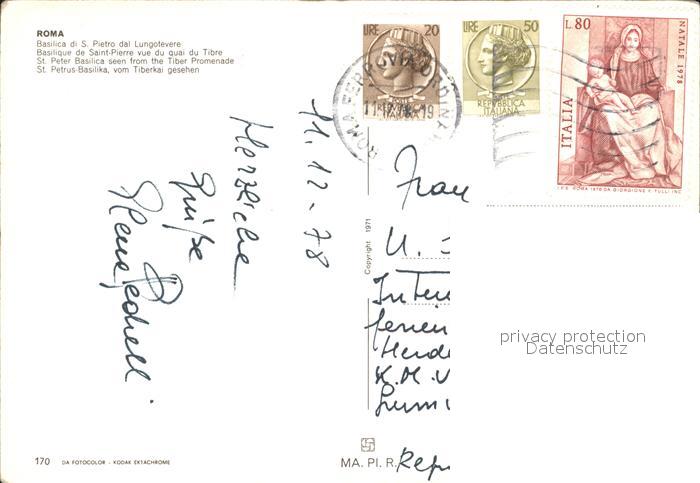 ROMA
Basilica di S. Pietro dal Lungotevere
Basilique de Saint-Pierre vue du quai du Tibre
St. Peter Basilica seen from the Tiber Promenade
St. Petrus-Basilika, vom Tiberkai gesehen
LIRE 20
POSTE
REPVBBLICA
ITALIANA
LIRE 50
POSTE
REPVBBLICA
ITALIANA
L.80
NATALE 1978
ITALIA
I.P.S. ROMA 1978 DA GIORGIONE F. TULLI INC.
ROMA FERROVIA ORDINARIE
11.12-78
Herzliche
Grüße
Copyright 1971
Frau
U.
ferien
K.M.V
privacy protection
Datenschutz
Rep
170 DA FOTOCOLOR - KODAK EKTACHROME
MA. PI. R.